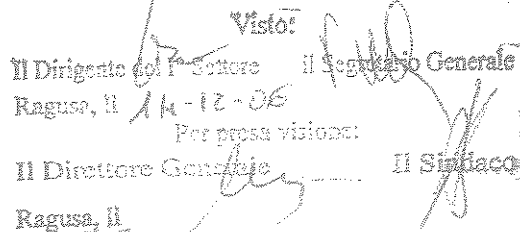 Visto:
Il Dirigente del I° Settore il Segretario Generale
Ragusa, lì 14-12-06
Per presa visione:
Il Direttore Generale Il Sindaco
Ragusa, lì